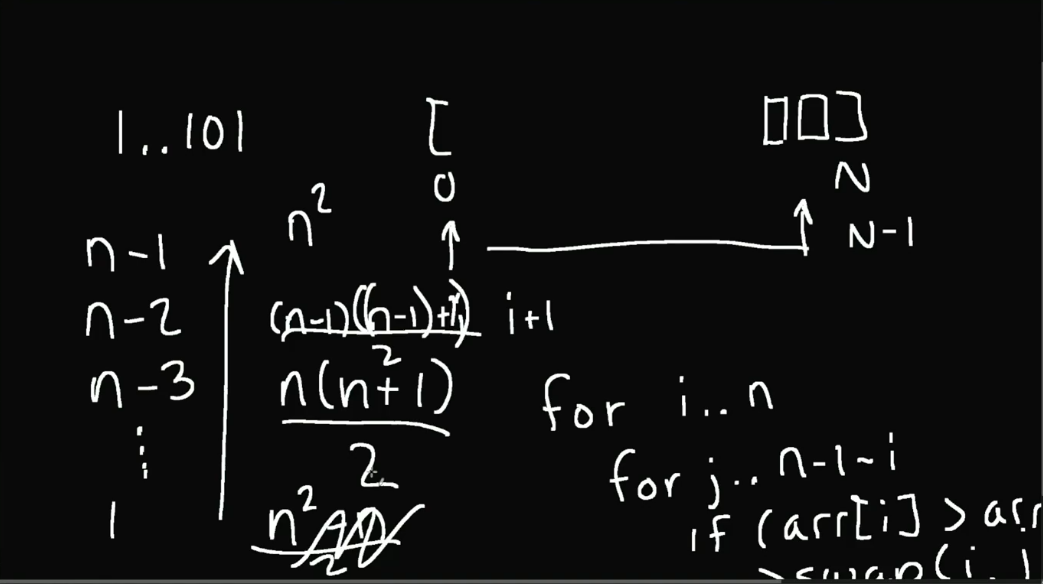 1..101
[ ]
0
N
N-1
n²
n-1
n-2
n-3
⋮
1
(n-1)((n-1)+1)
2
i+1
n(n+1)
2
n²
2
for i..n
for j..n-1-i
if (arr[i] > arr
>swap(i..